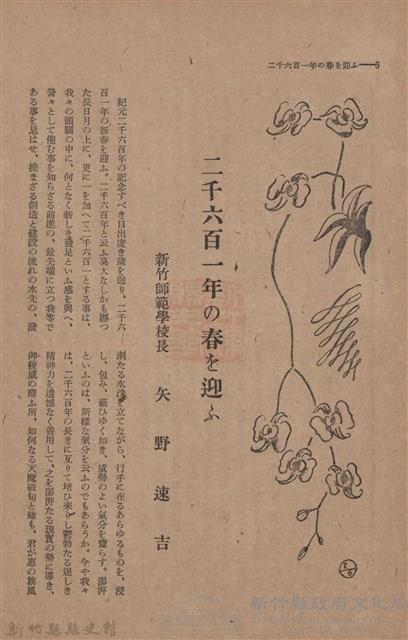 二千六百一年の春を迎ふ——6
二千六百一年の春を迎ふ
新竹師範學校長　矢野速吉
紀元二千六百年の記念すべき目出度き歳を送り、二千六
百一年の新春を迎ふ。二千六百年と云ふ莫大なしかも輝つ
た長日月の上に、更に一を加へて二千六百一とする事は、
我々の頭腦の中に、何となく新しき發足といふ感を與へ、
營々として倦む事を知らざる前進の、最先端に立つ我等で
ある事を思はせ、撓まざる創造と建設の流れの水先の、潑
溂たる水沫を立てながら、行手に在るあらゆるものを、浸
し、包み、蔽ひゆく如き、威勢のよい氣分を齎らす。澎湃
といふのは、斯樣な氣分を云ふのでもあらうか。今や我々
は、二千六百年の長きに亙りて培ひ來りし鬱勃たる逞しき
精神力を遺憾なく善用して、之を澎湃たる現實の勢に導き、
御稜威の靡ふ所、如何なる天魔破旬と雖も、君が惠の旗風
新竹縣政府文化局
新竹縣縣史館